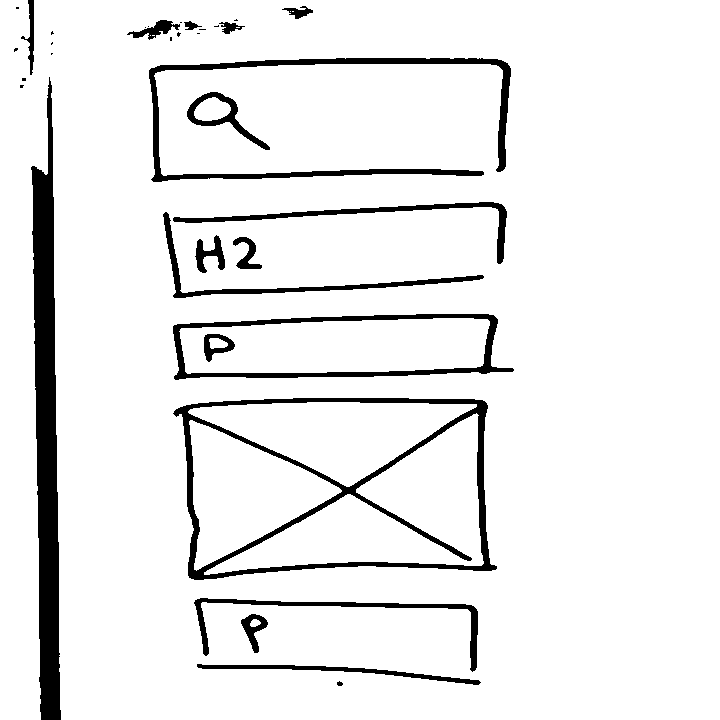 H2
P
P